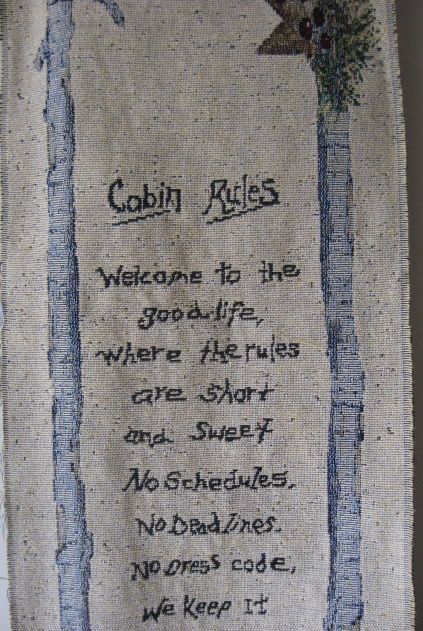 Cabin Rules
Welcome to the
good life,
where the rules
are short
and sweet
No Schedules.
No Deadlines.
No Dress code,
We Keep It